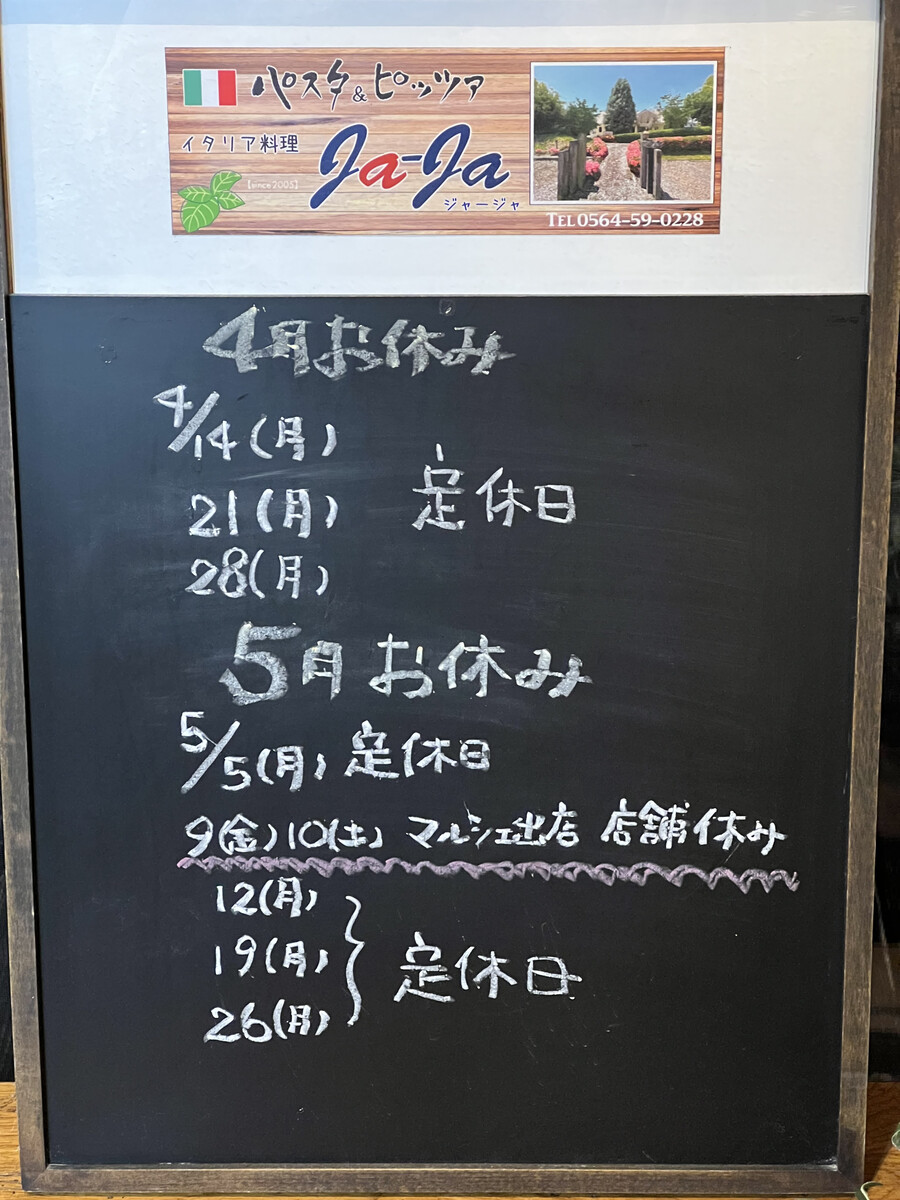 パスタ&ピッツァ
イタリア料理
Ja-Ja
【since2005】
ジャージャ
TEL 0564-59-0228
4月お休み
4/14(月)
21(月) 定休日
28(月)
5月お休み
5/5(月) 定休日
9(金)10(土) マルシェ出店 店舗休み
12(月)
19(月) 定休日
26(月)